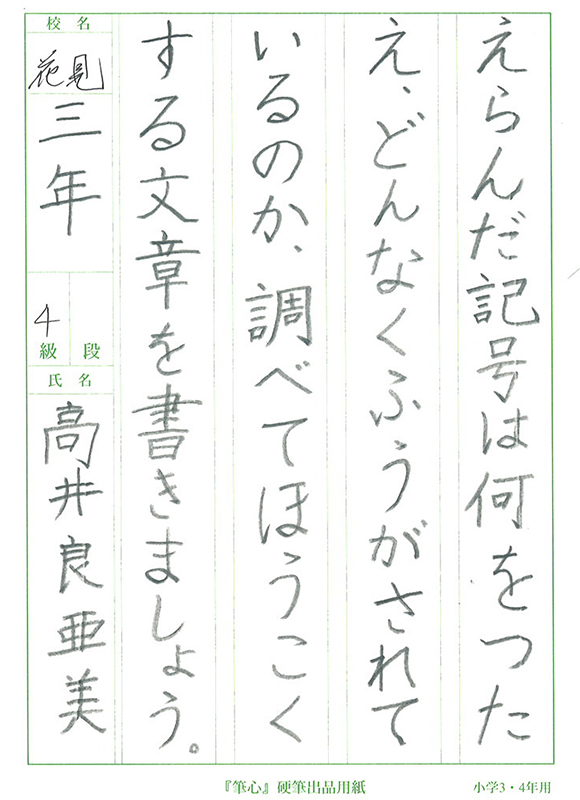 えらんだ記号は何をつた
え、どんなくふうがされて
いるのか、調べてほうこく
する文章を書きましょう。
校名
花見
三年
4
級 段
氏名
高井良亜美
『筆心』硬筆出品用紙
小学3・4年用